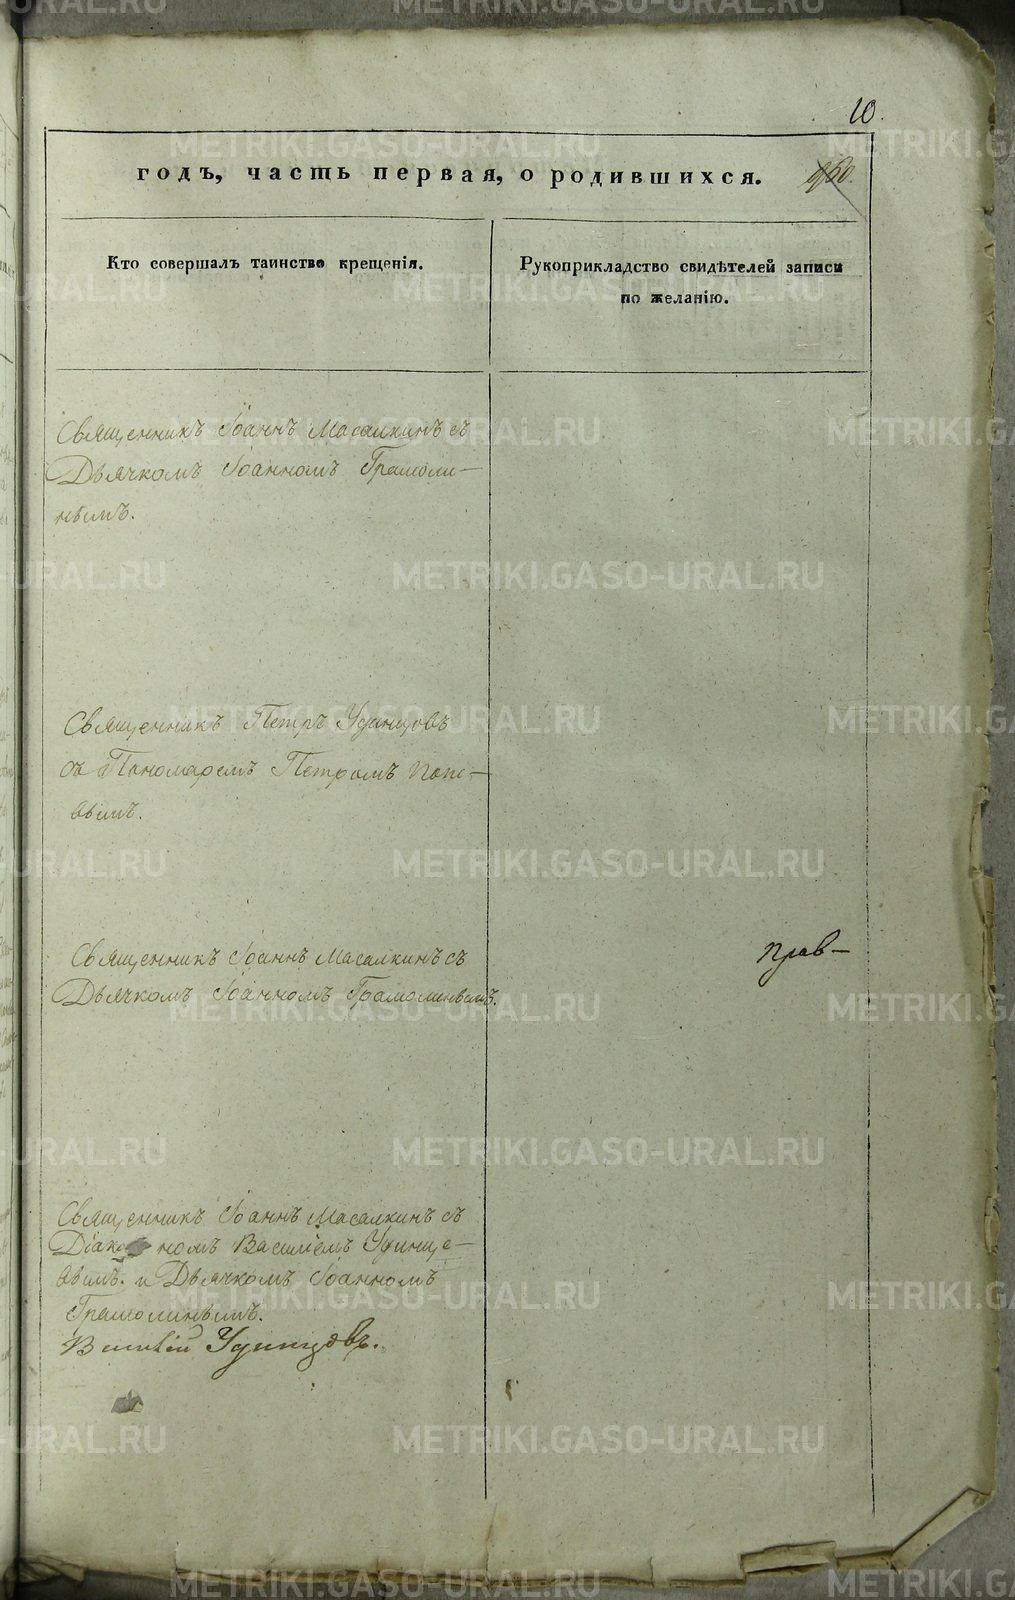 10.
годъ, часть первая, о родившихся.
Кто совершалъ таинство крещенія.
Рукоприкладство свидѣтелей записи
по желанію.
Священникъ Іоаннъ Масалкинъ съ
Дьячкомъ Іоанномъ Грамоли-
нымъ.
Священникъ Петръ Удинцовъ
съ Пономаремъ Петромъ Попо-
вымъ.
Священникъ Іоаннъ Масалкинъ съ
Дьячкомъ Іоанномъ Грамолинымъ.
Прав-
Священникъ Іоаннъ Масалкинъ съ
Діакономъ Василіемъ Удинце-
вымъ. и Дьячкомъ Іоанномъ
Грамолинымъ.
Удинцовъ.
METRIKI.GASO-URAL.RU